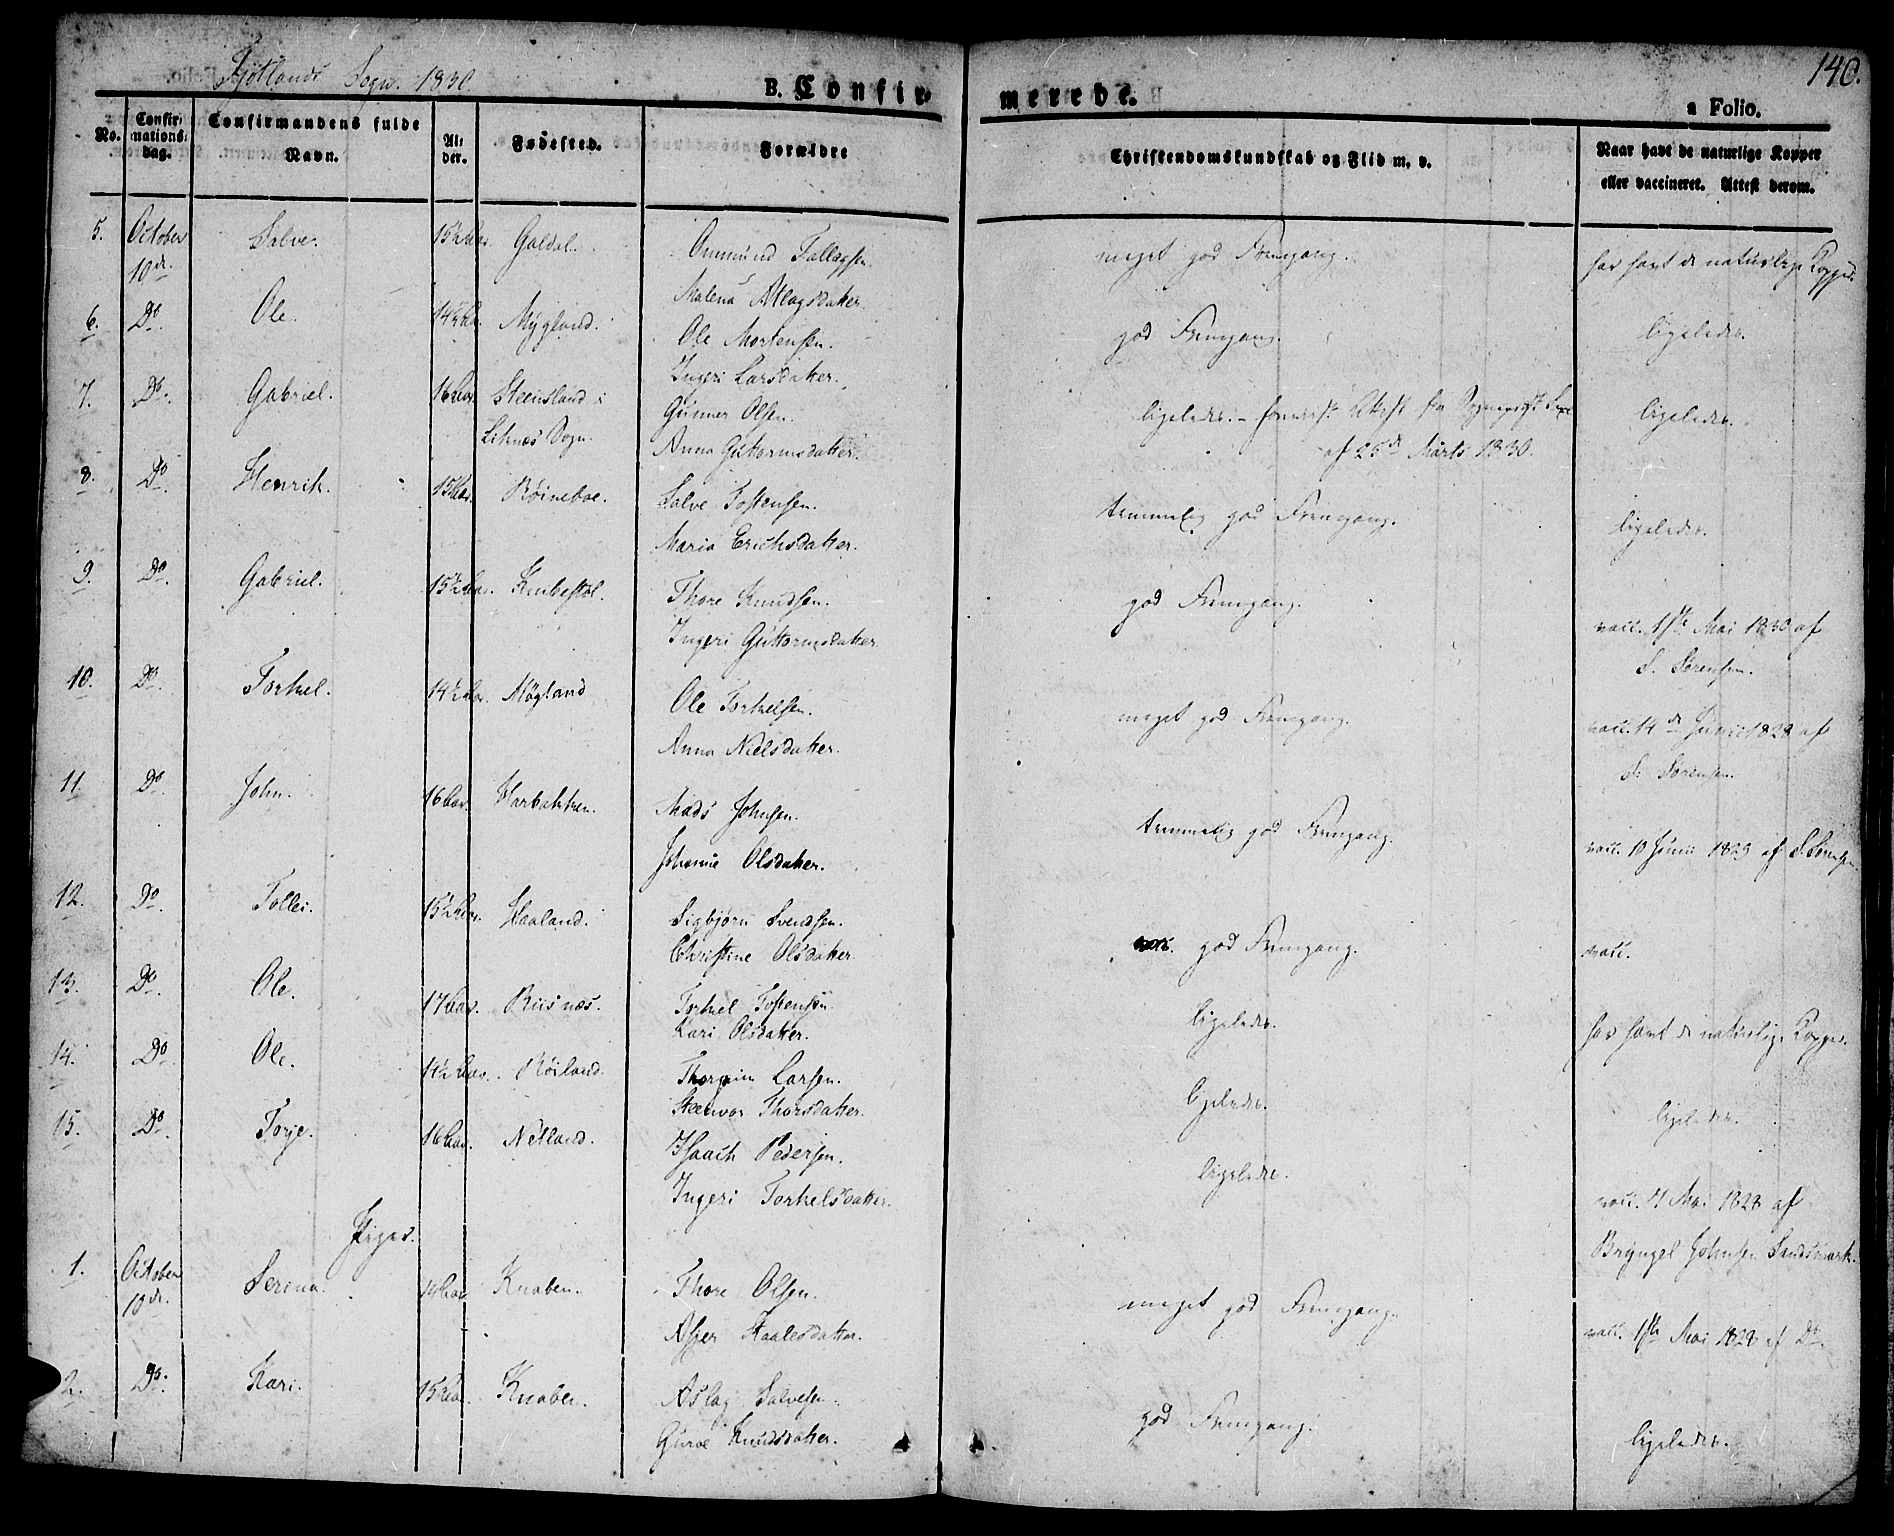 Fjotlands Sogn. 1830
B. Confirmerede.
140.
a Folio.
No.
Confirmations-dag.
Confirmandens fulde Navn.
Alder.
Fødested.
Forældre
Christendomskundskab og Flid m. v.
Naar havt de naturlige Kopper
eller vaccineret. Attest derom.
5. October 10de. Salve. 15½ Aar. Galdal. Ommund Tallagsen. meget god Fremgang. har havt de naturlige Kopper.
Malena Atlagsdatter.
6. Do. Ole. 14½ Aar. Mygland. Ole Mortensen. god Fremgang. ligeledes.
Ingeri Larsdatter.
7. Do. Gabriel. 16 Aar. Steensland i Gunner Olsen. ligeledes. - foreviist Attest fra ligeledes.
Litnes Sogn. Anna Guttormsdatter. af 25de Marts 1830.
8. Do. Henrik. 15 Aar. Røineboe. Salve Tostensen. temmelig god Fremgang. ligeledes.
Maria Erichsdatter.
9. Do. Gabriel. 15½ Aar. Knibestøl. Thore Knudsen. god Fremgang. vacc. 1ste Mai 1830 af
Ingeri Guttormsdatter. S. Sørensen.
10. Do. Torkel. 14½ Aar. Møgland Ole Torkelsen. meget god Fremgang. vacc. 14de Junii 1828 af
Anna Nielsdatter. S. Sørensen.
11. Do. John. 16 Aar. Harbakken. Mads Johnsen. temmelig god Fremgang. vacc. 10 Junii 1829 af S. Sørensen
Johanne Olsdatter.
12. Do. Tollei. 15½ Aar. Haaland. Sigbjørn Svendsen. god Fremgang. vacc.
Christine Olsdatter.
13. Do. Ole. 17 Aar. Risnæs. Torkel Tostensen ligeledes. har havt de naturlige Kopper.
Kari Olsdatter.
14. Do. Ole. 14½ Aar. Røiland. Thorgrim Larsen. ligeledes. ligeledes.
Steenvor Thorsdatter.
15. Do. Torje. 16 Aar. Netland. Isaach Pedersen. ligeledes. vacc. 7 Mai 1828 af
Ingeri Torkelsdatter. Bryngel Johnsen Sandsmark.
Piger.
1. October 10de. Serina. 14 Aar Knaben. Thore Olsen. meget god Fremgang. vacc. 1ste Mai 1828 af Do.
Asger Staalesdatter.
2. Do. Kari. 15 Aar. Knaben. Aslag Salvesen. god Fremgang. ligeledes.
Guroe Knudsdatter.